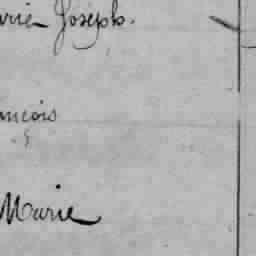 arie Joseph.
ancois
Marie